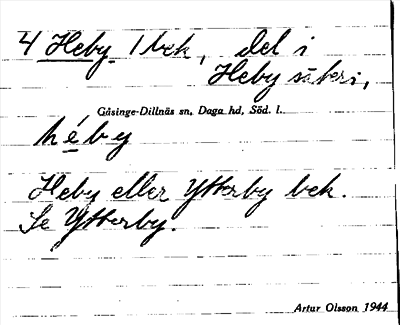 4 Heby 1 bek, del i
Heby säteri,
Gåsinge-Dillnäs sn, Daga hd, Söd. l.
héby
Heby eller Ytterby bek.
Se Ytterby.
Artur Olsson 1944